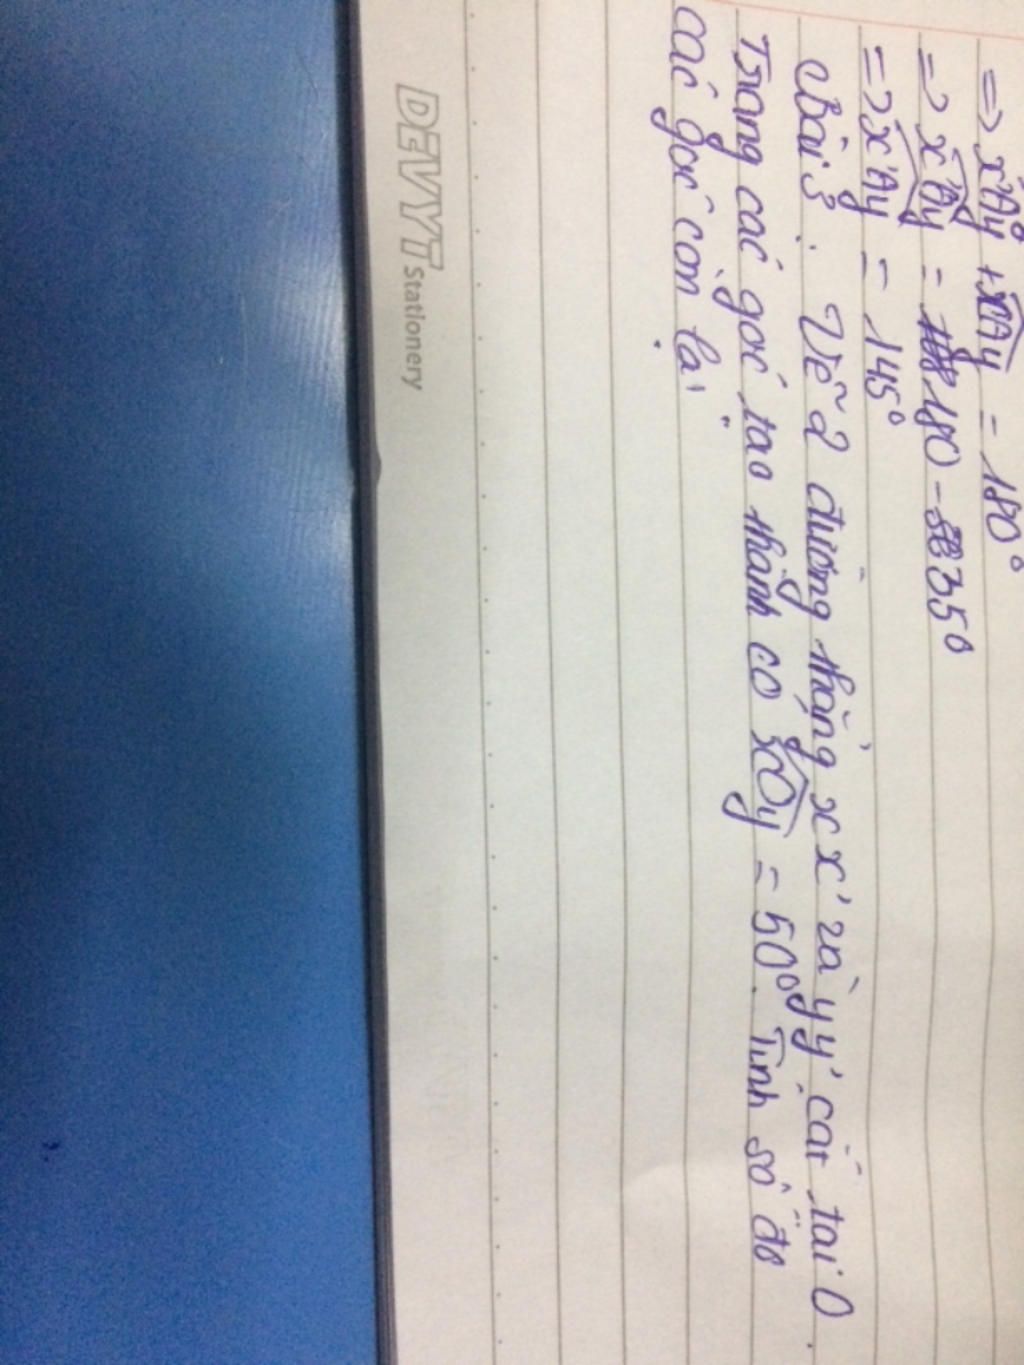 => x'Ay + xAy = 180°
=> x'Ay = 180 - 35°
=> x'Ay = 145°
Bài 3: Vẽ 2 đường thẳng xx' và yy' cắt tại O.
Trong các góc tạo thành có xOy = 50°. Tính số đo
các góc còn lại.
DEVYT Stationery